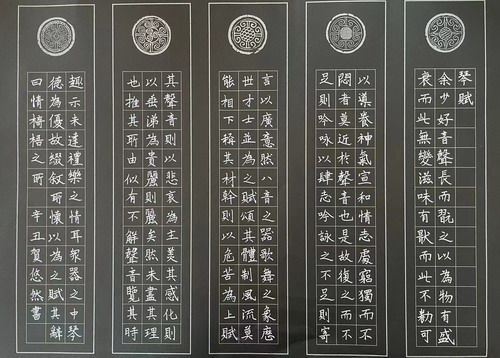 琴賦
余少好音聲長而翫之以為物有盛
衰而此無變滋味有猒而此不勌可
以導養神氣宣和情志處窮獨而不
悶者莫近於聲音也是故復之而不
足則吟咏以肆志吟詠之不足則寄
言以廣意然八音之器歌舞之象應
世才士並為之賦頌其體制風流莫
能相下稱其材幹則以危苦為上賦
其聲音則以悲哀為主美其感化則
以垂涕為貴麗則麗矣然未盡其理
也推其所由似有不解聲音覽其時
趣示未達禮樂之情耳衆器之中琴
德為優故綴叙所懷以為之賦其辭
曰情椅梧之所 辛丑賀悠然書